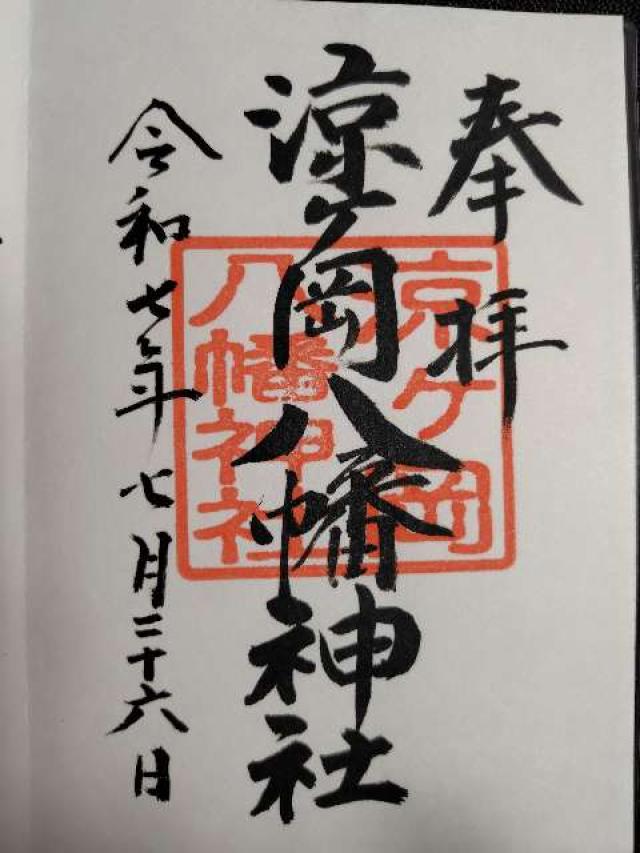 奉拝
涼ヶ岡八幡神社
令和七年七月二十六日
涼ケ岡
八幡神社